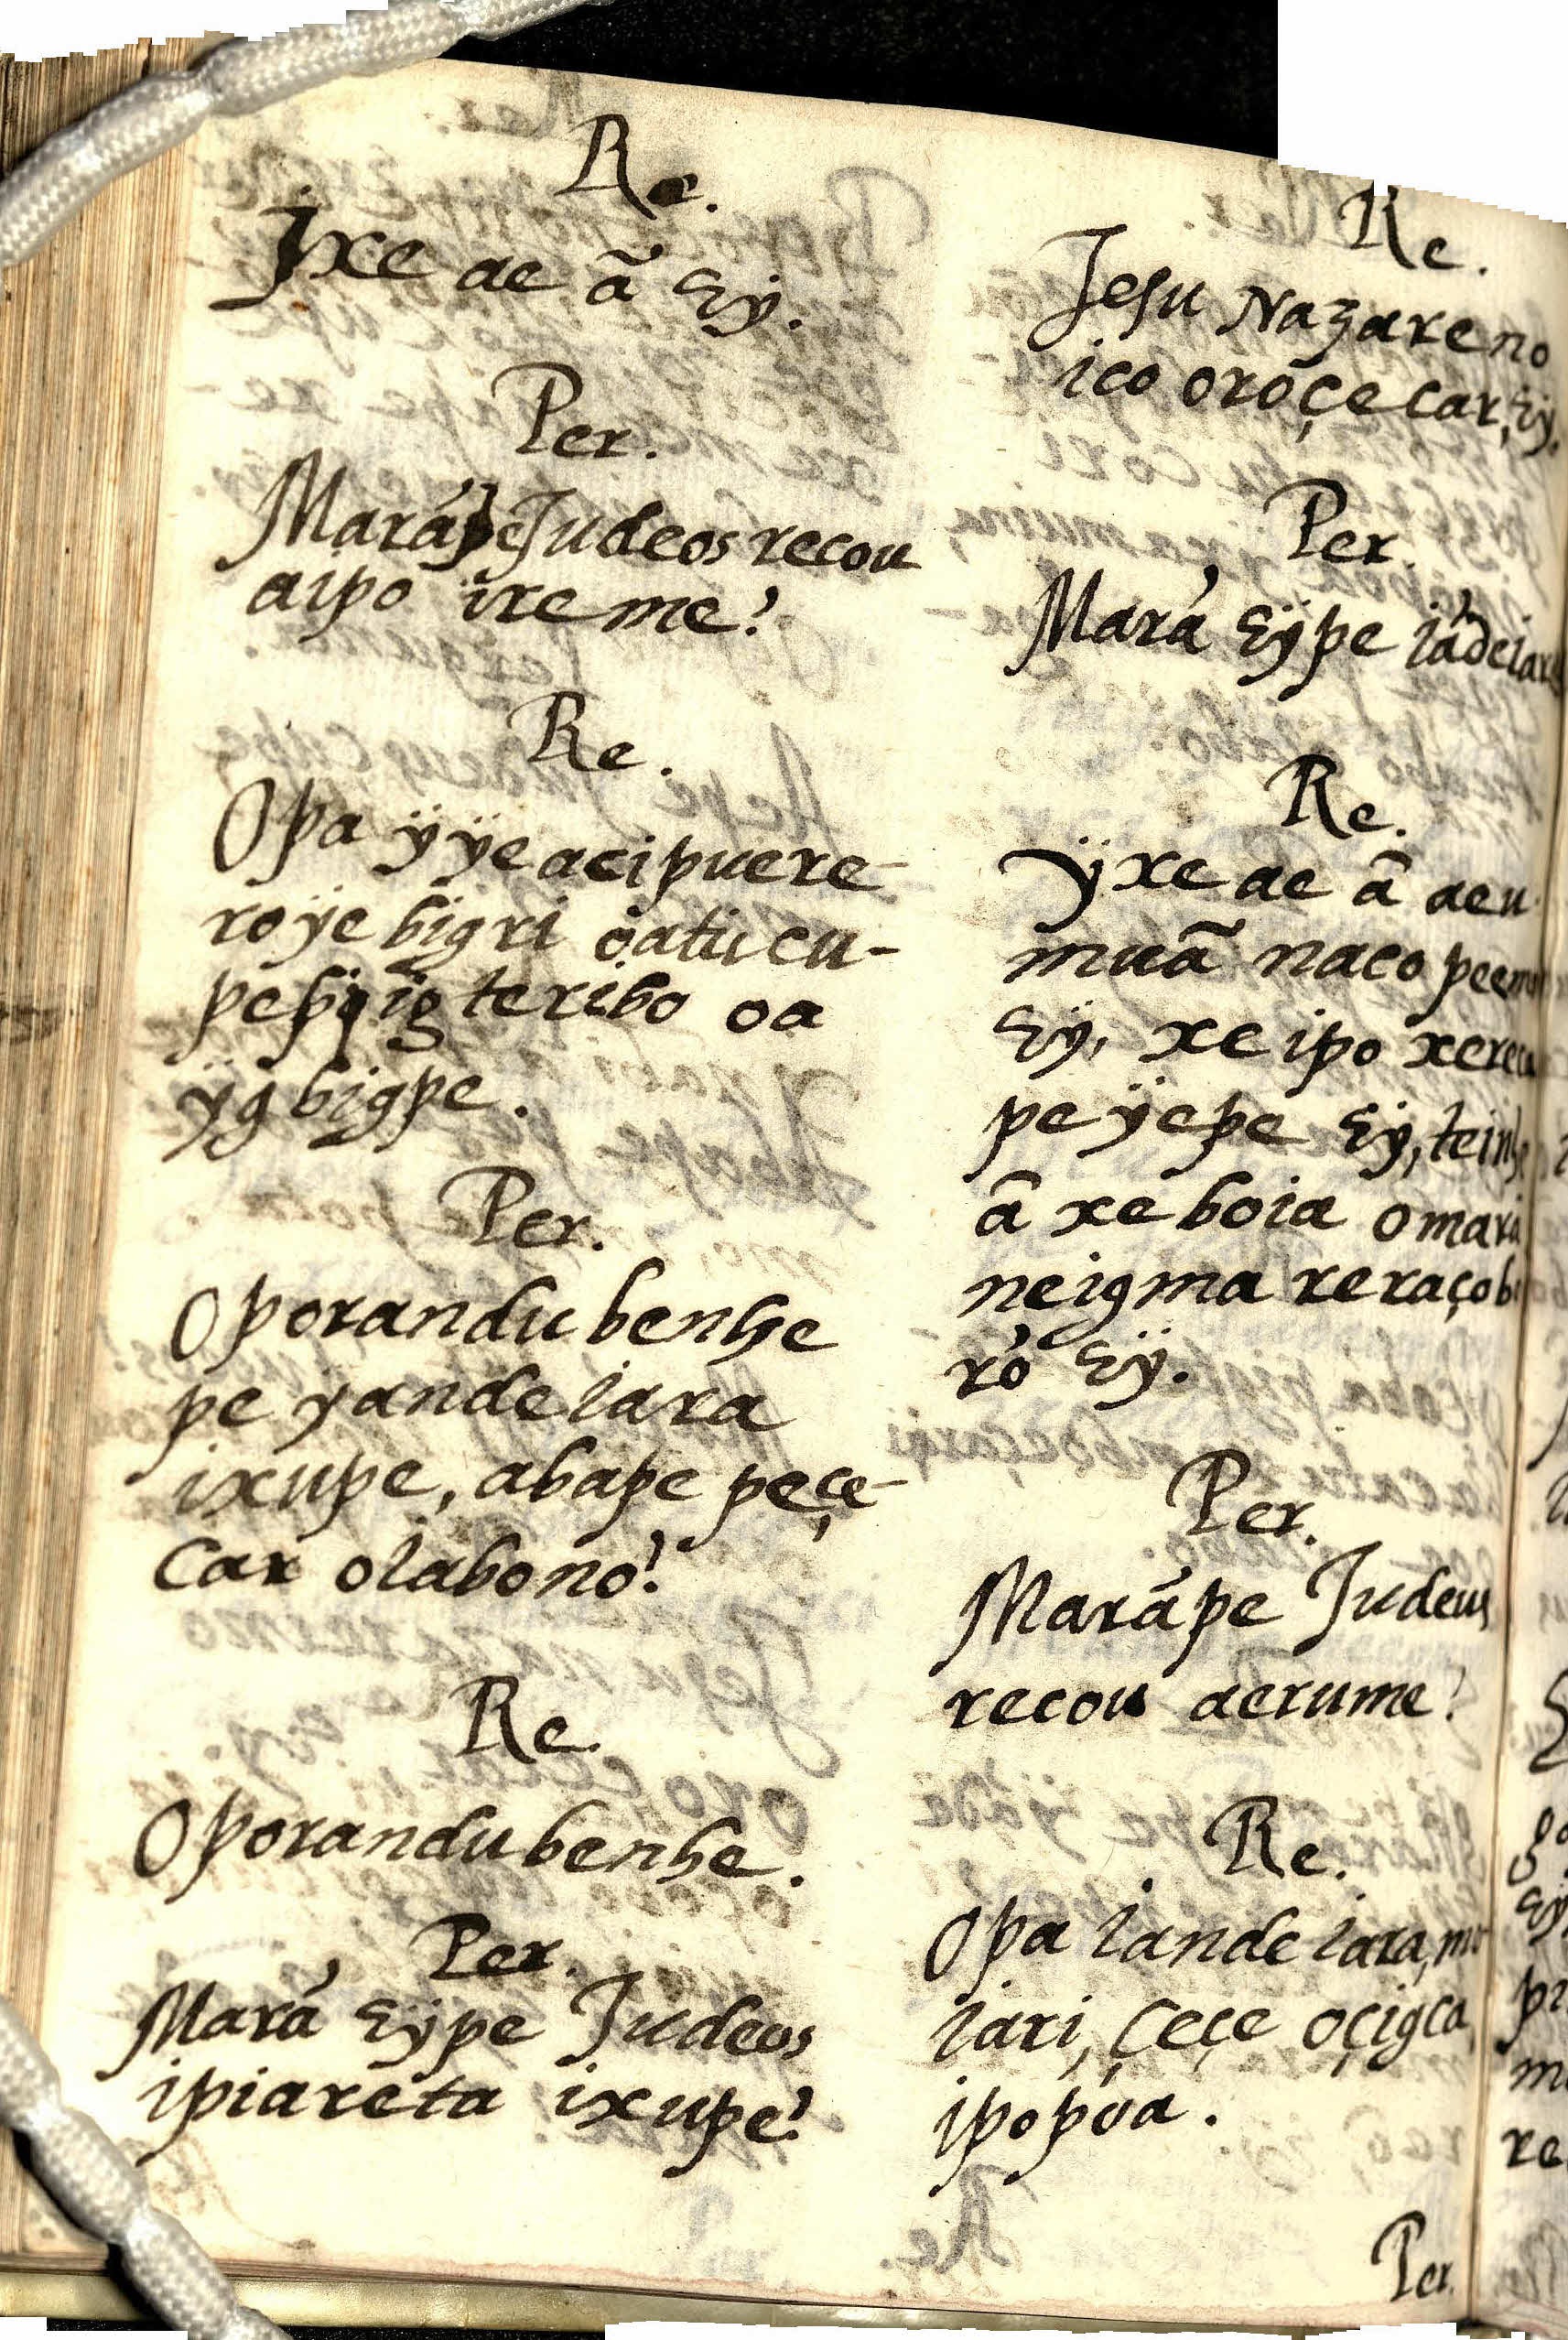 Re.
Jxe ae ã εÿ.
Per.
Marápe Judeos recou
aipo ireme?
Re.
Opa ÿÿe acipuere-
roÿe bigri oatucu-
pe bÿigteribo oa
ÿg bigpe.
Per.
Oporandu benhe
pe yande iara
ixupe, abape peçe-
car oiabo no?
Re.
Oporandu benhe.
Per.
Mará εÿpe Judeos
ipiareta ixupe?
Re.
Jesu Nazareno
ico oroçecar, εÿ.
Per.
Mará εÿpe
Re.
ÿxe ae ã aeu
muã naco
εÿ, xe ipo
pe ÿepe εÿ,
ã xe boia
neigma
ró εÿ.
Per.
Marápe Judeus
recou aerume?
Re.
Opa iande iara,
iari, çeçe oçigca
ipopoa.
Per